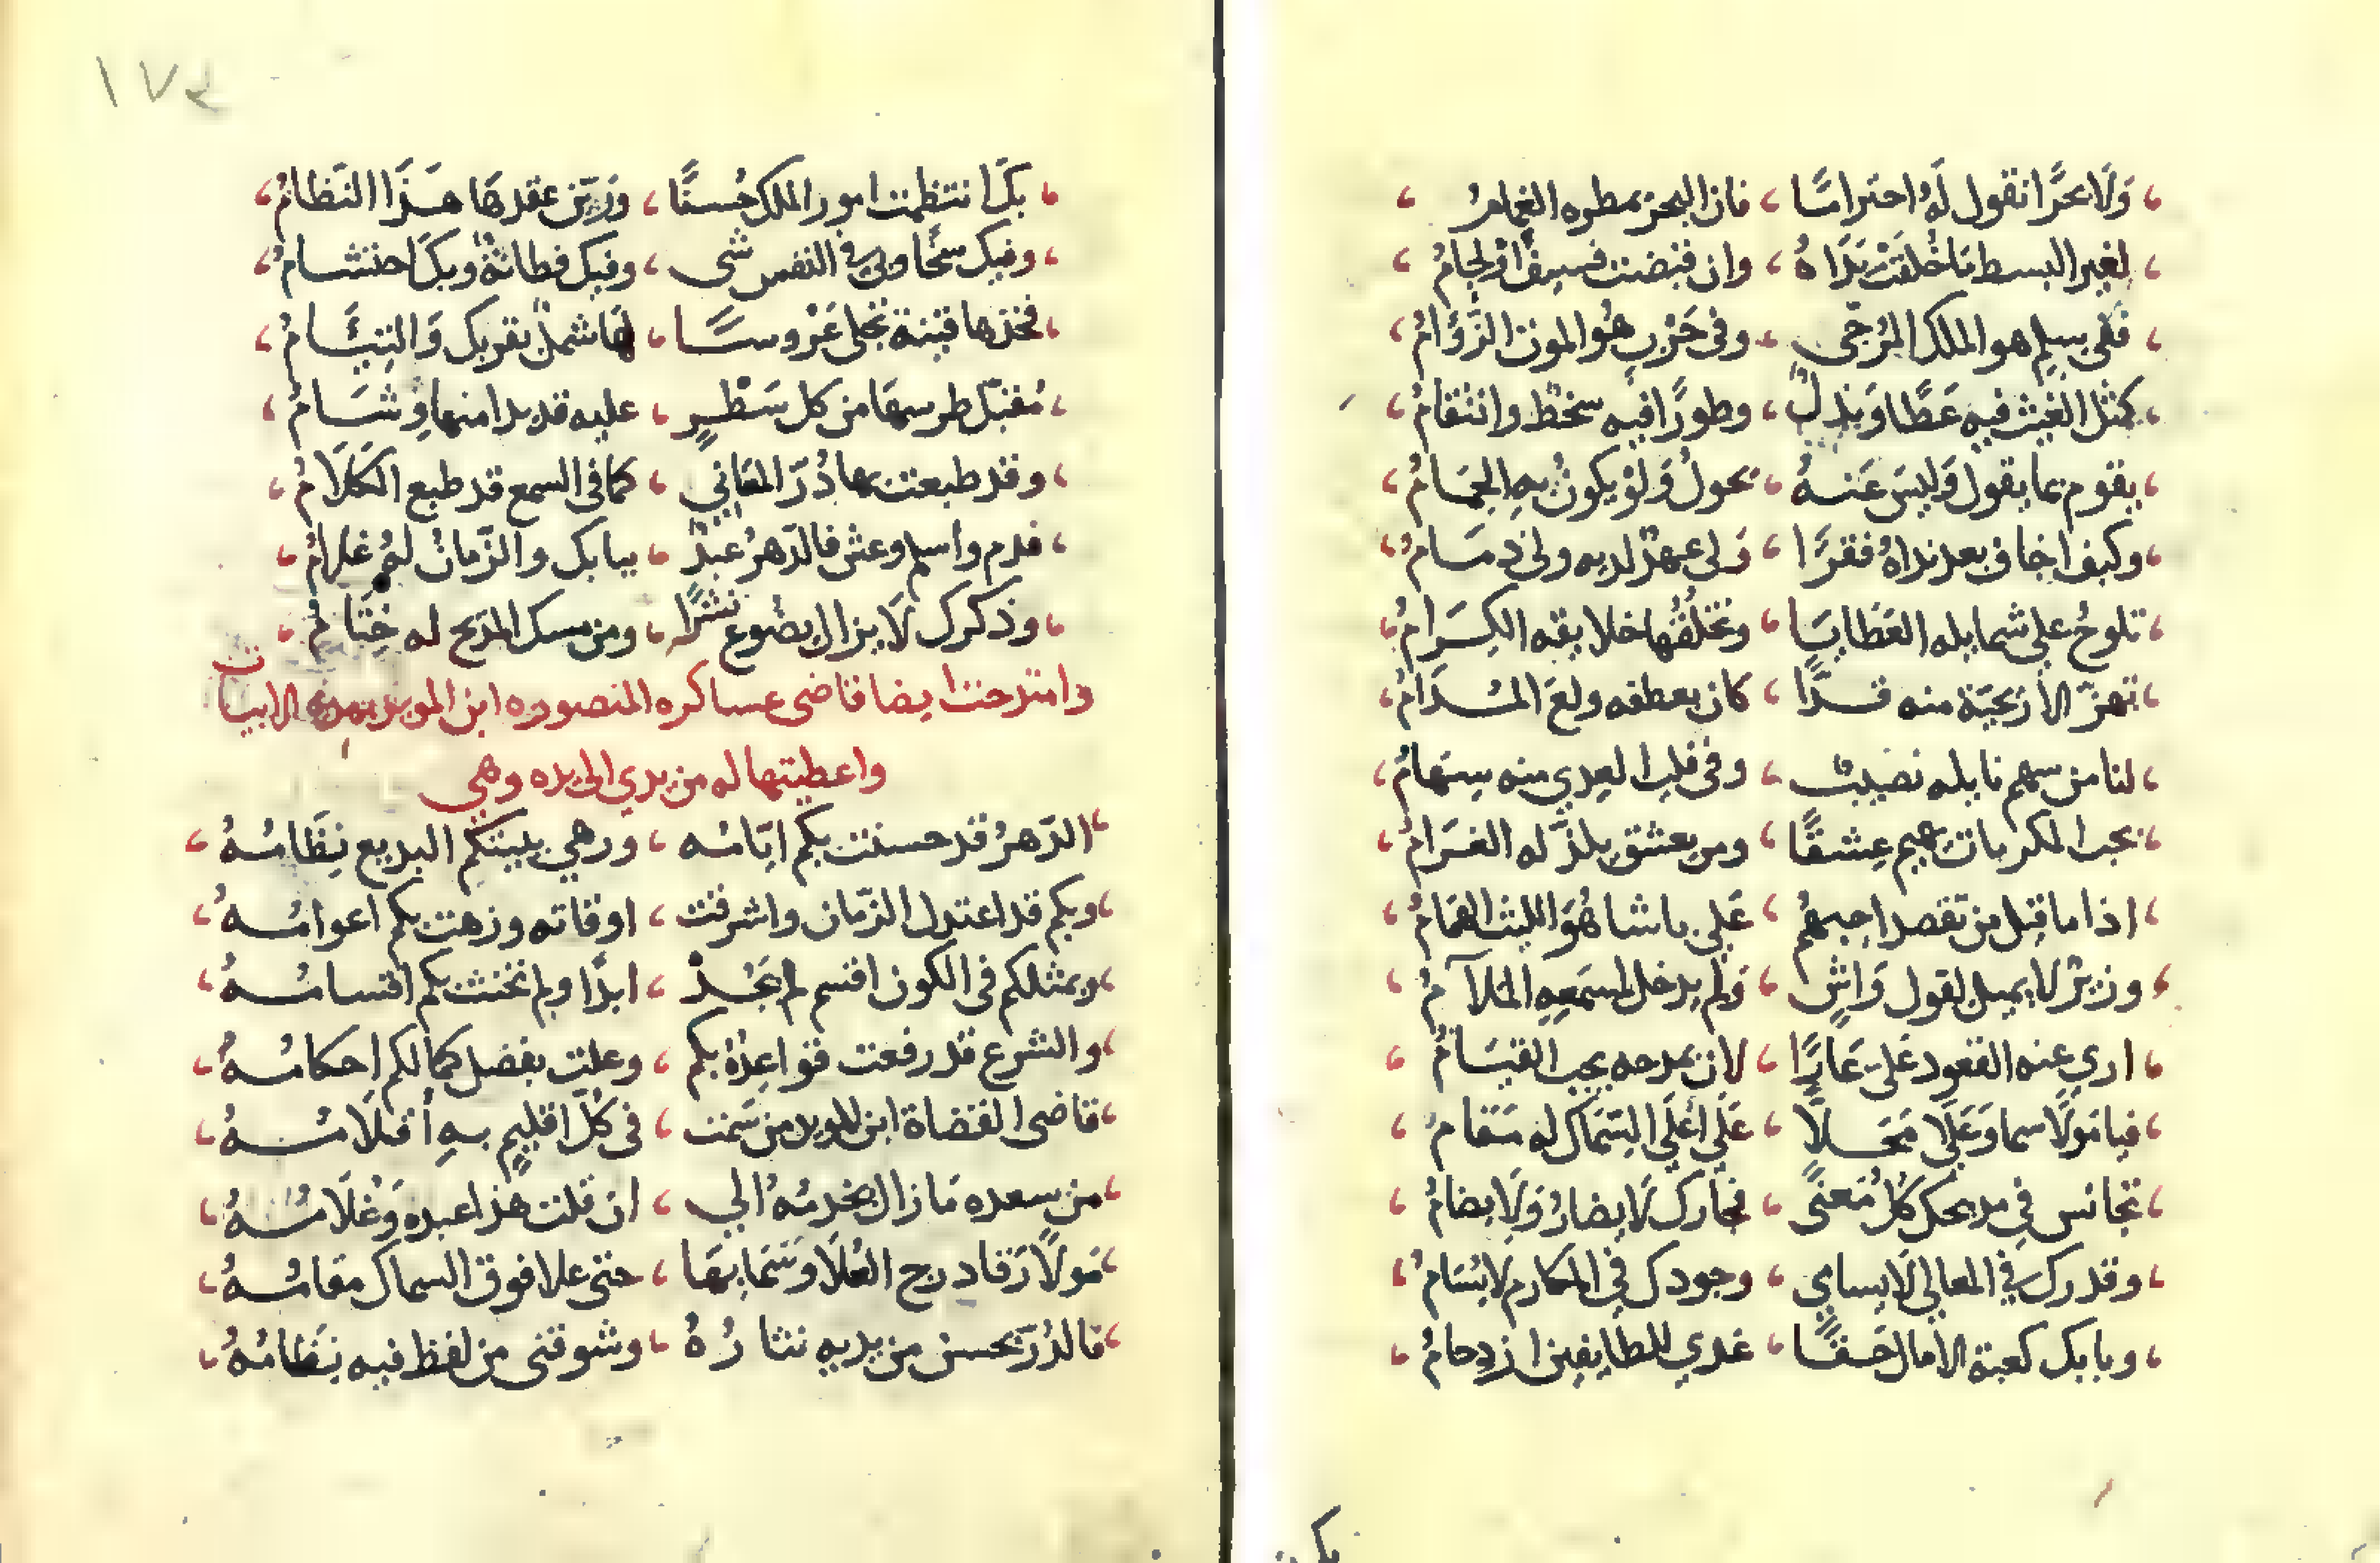 ولا بحرًا تقول له احترامًا ، فان البحر يمطره الغمام
لغير البسط ما خلقت يداه ، وان قبضت فسيف او لجام
ففى سلم هو الملك المرجّى ، وفى حرب هو الموت الزؤام
كمثل الغيث فيه عطا وبذل ، وطورًا فيه سخط وانتقام
يقوم بما يقول وليس عنه ، يحول ولو يكون به الحمام
وكيف اخاف بعد نداه فقرًا ، ولى عهد لديه ولى ذمام
تلوح على شمايله العطايا ، وتخلفها خلايقه الكرام
تهزّ الاريحيّة منه قدًّا ، كان بعطفه ولع المدام
لنا من سهم نايله نصيب ، وفى قلب العدي منه سهام
بحب المكرمات يهيم عشقًا ، ومن يعشق يلذّ له الغرام
اذا ما قيل من تقصد اجبهم ، على باشا هو الليث الهمام
وزير لا يميل لقول واشٍ ، ولم يدخل لمسمعه الملآم
ارى عنه القعود على عارًا ، لان بمدحه يجب القيام
فيا مولا سما وعلى محلاً ، على اعلى السماك له مقام
تجانس في مديحك كل معنى ، فجارك لا يضار ولا يضام
وقدرك في المعالي لا يسامي ، وجودك في المكارم لا يسام
وبابك كعبة الامال حقًّا ، غدي للطايفين ازدحام
بك
١٧٤
بك انتظمت امور الملك حسنًا ، وزيّن عقدها هذا النظام
وفيك سخا ولي في النفس شى ، وفيك فطانة وبك احتشام
فخذها قينة تجلى عروسًا ، لها شمل بقربك والتيام
مقبّل طرسها من كل سطرٍ ، عليه قد بدا منها وشام
وقد طبعت بها درّ المعاني ، كما فى السمع قد طبع الكلام
فدم واسلم وعش فالدّهر عبد ، ببابك والزّمان لكم غلام
وذكرك لا يزال يضوع نشرًا ، ومن مسك المديح له ختام
وامتدحت ايضا قاضى عساكره المنصوره ابن المويد بهذه الابيات
واعطيتها له من يدي الى يده وهي
الدّهر قد حسنت بكم ايّامه ، وزهي ببيتكم البديع نظامه
وبكم قد اعتدل الزّمان واشرقت ، اوقاته وزهت بكم اعوامه
وبمثلكم فى الكون اقسم لم يَجُد ، ابدًا ولم تحنث بكم اقسامه
والشرع قد رفعت قواعده بكم ، وعلت بفضل كمالكم احكامه
قاضى القضاة ابن المويد من سمت ، فى كلّ اقليم به أقلامه
من سعده ما زال يخدمه الي ، ان قلت هذا عبده وغلامه
مولا رقا درج العلا وسما بها ، حتى علا فوق السماك مقامه
فالدّرّ يحسن من يديه نثاره ، وشوقنى من لفظ فيه نظامه